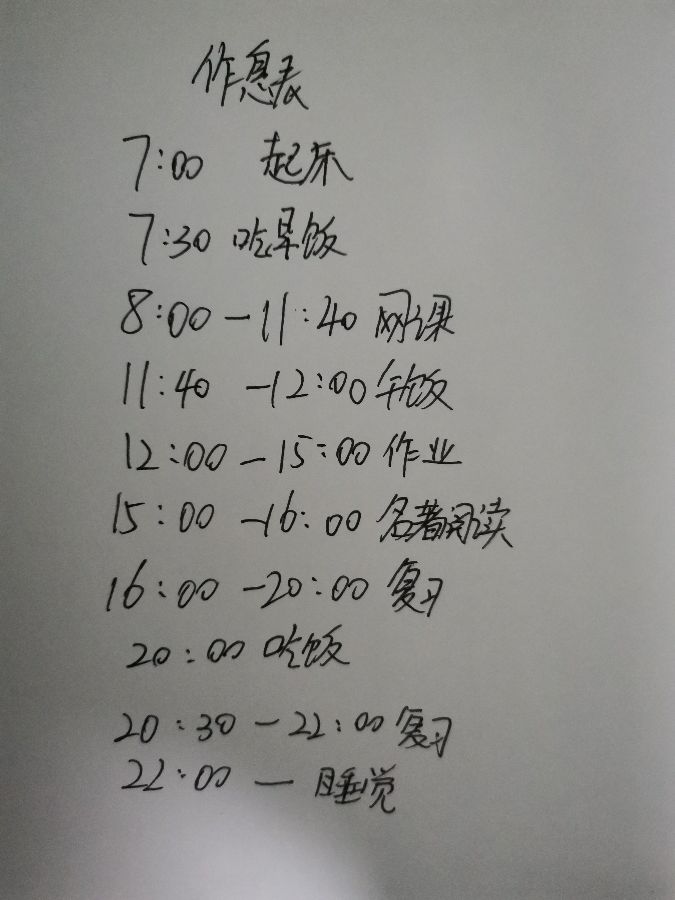 作息表
7:00 起床
7:30 吃早饭
8:00-11:40 网课
11:40-12:00 午饭
12:00-15:00 作业
15:00-16:00 名著阅读
16:00-20:00 复习
20:00 吃饭
20:30-22:00 复习
22:00-睡觉